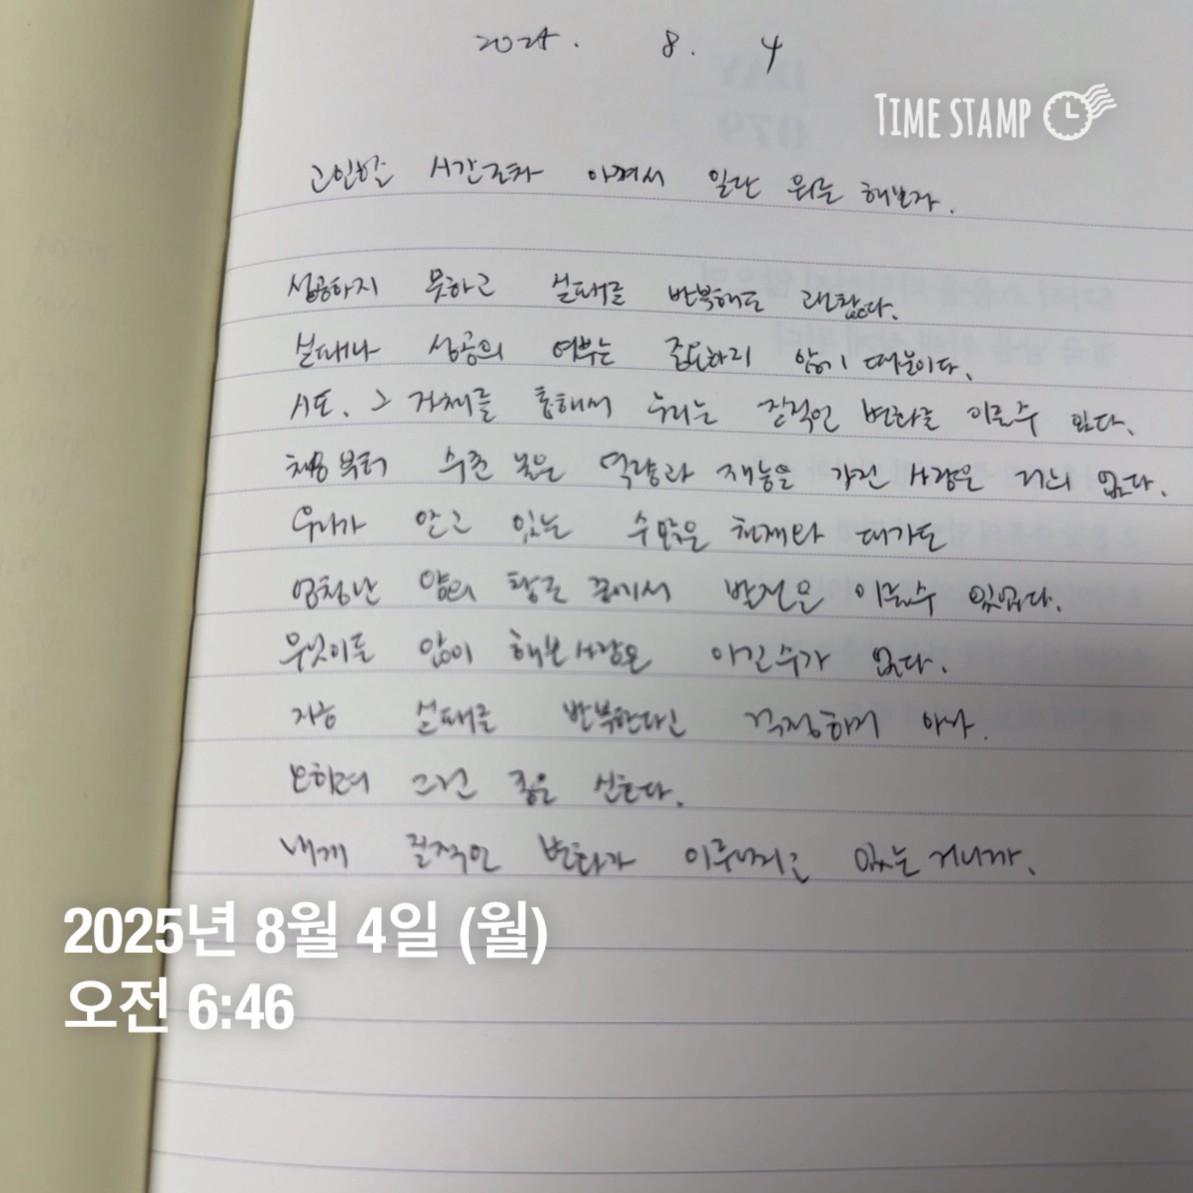 2025. 8. 4
TIME STAMP
고민할 시간조차 아껴서 일단 뭐든 해보자.
성공하지 못하고 실패를 반복해도 괜찮다.
실패나 성공의 여부는 중요하지 않기 때문이다.
시도, 그 자체를 통해서 우리는 질적인 변화를 이룰수 있다.
처음부터 수준 높은 역량과 재능을 가진 사람은 거의 없다.
우리가 알고 있는 수많은 천재와 대가도
엄청난 양의 활동 끝에서 발전을 이룰수 있었다.
무엇이든 많이 해본 사람은 이길수가 없다.
지금 실패를 반복한다고 걱정하지 마라.
오히려 그건 좋은 신호다.
내게 질적인 변화가 이루어지고 있는 거니까.
2025년 8월 4일 (월)
오전 6:46
DAY
079